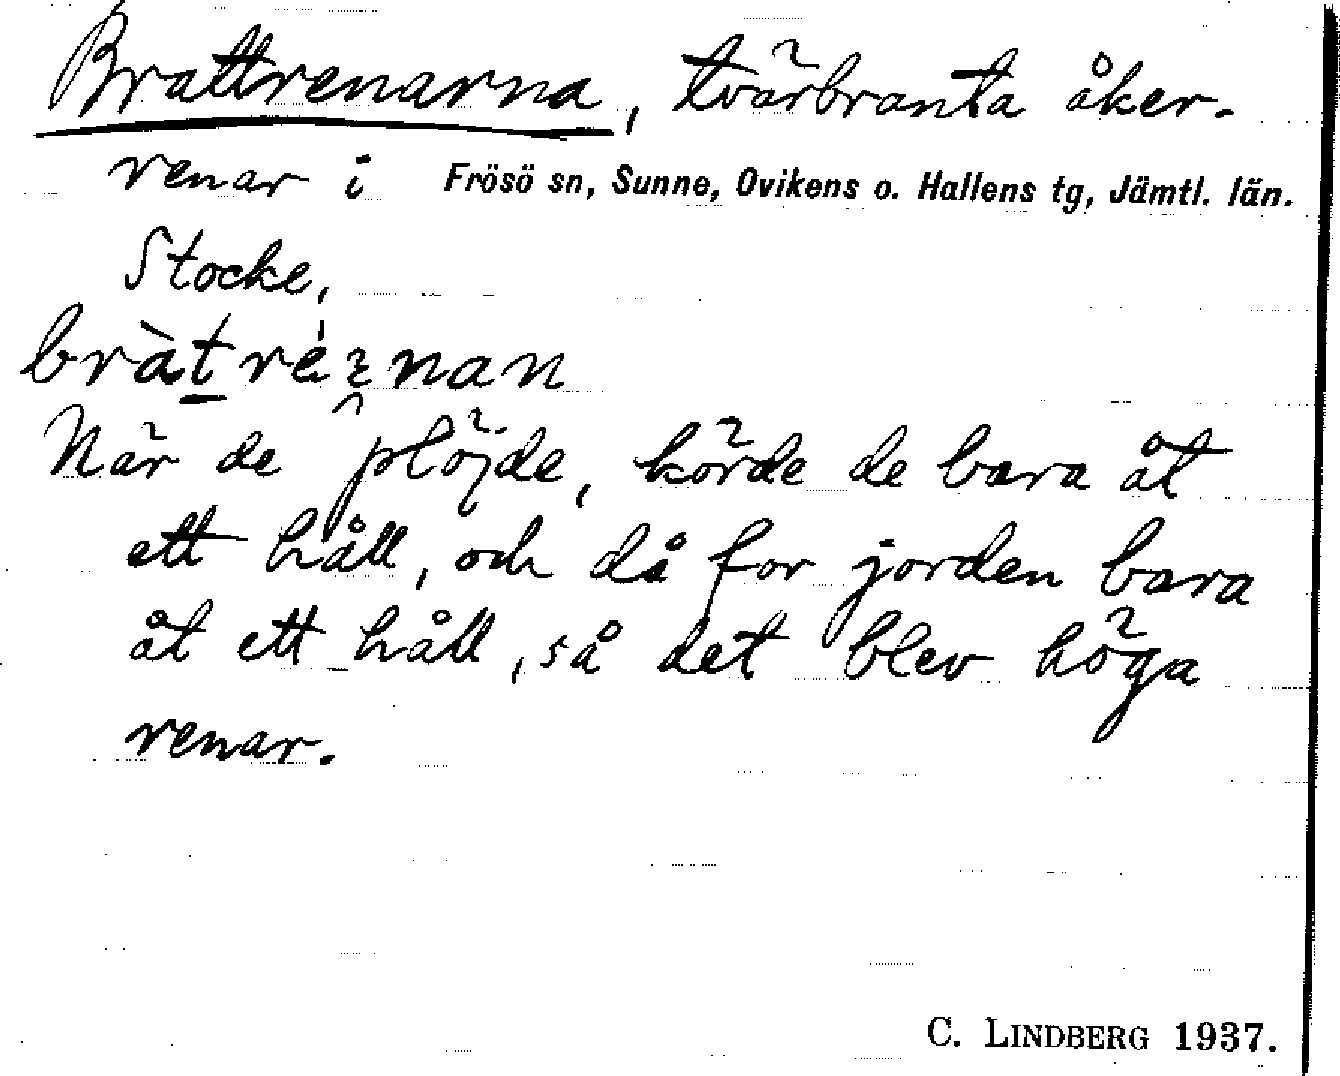 Brattrenarna, tvärbranta åker-
renar i Frösö sn, Sunne, Ovikens o. Hallens tg, Jämtl. län.
Stocke,
När de plöjde, körde de bara åt
ett håll, och då for jorden bara
åt ett håll, så det blev höga
renar.
C. LINDBERG 1937.